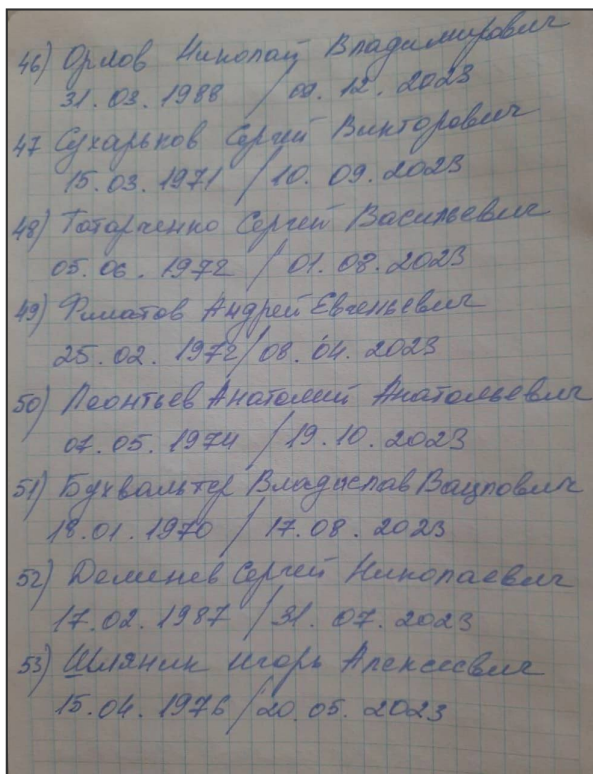 46) Орлов Николай Владимирович
31. 03. 1988 / 09. 12. 2023
47 Сухарьков Сергей Викторович
15. 03. 1971 / 10. 09. 2023
48) Татарченко Сергей Васильевич
05. 06. 1972 / 01. 08. 2023
49) Филатов Андрей Евгеньевич
25. 02. 1972 / 08. 04. 2023
50) Леонтьев Анатолий Анатольевич
07. 05. 1974 / 19. 10. 2023
51) Бухвальтер Владислав
18. 01. 1970 / 17. 08. 2023
52) Деменев Сергей Николаевич
17. 02. 1987 / 31. 07. 2023
53) Шляник Игорь Алексеевич
15. 04. 1976 / 20. 05. 2023